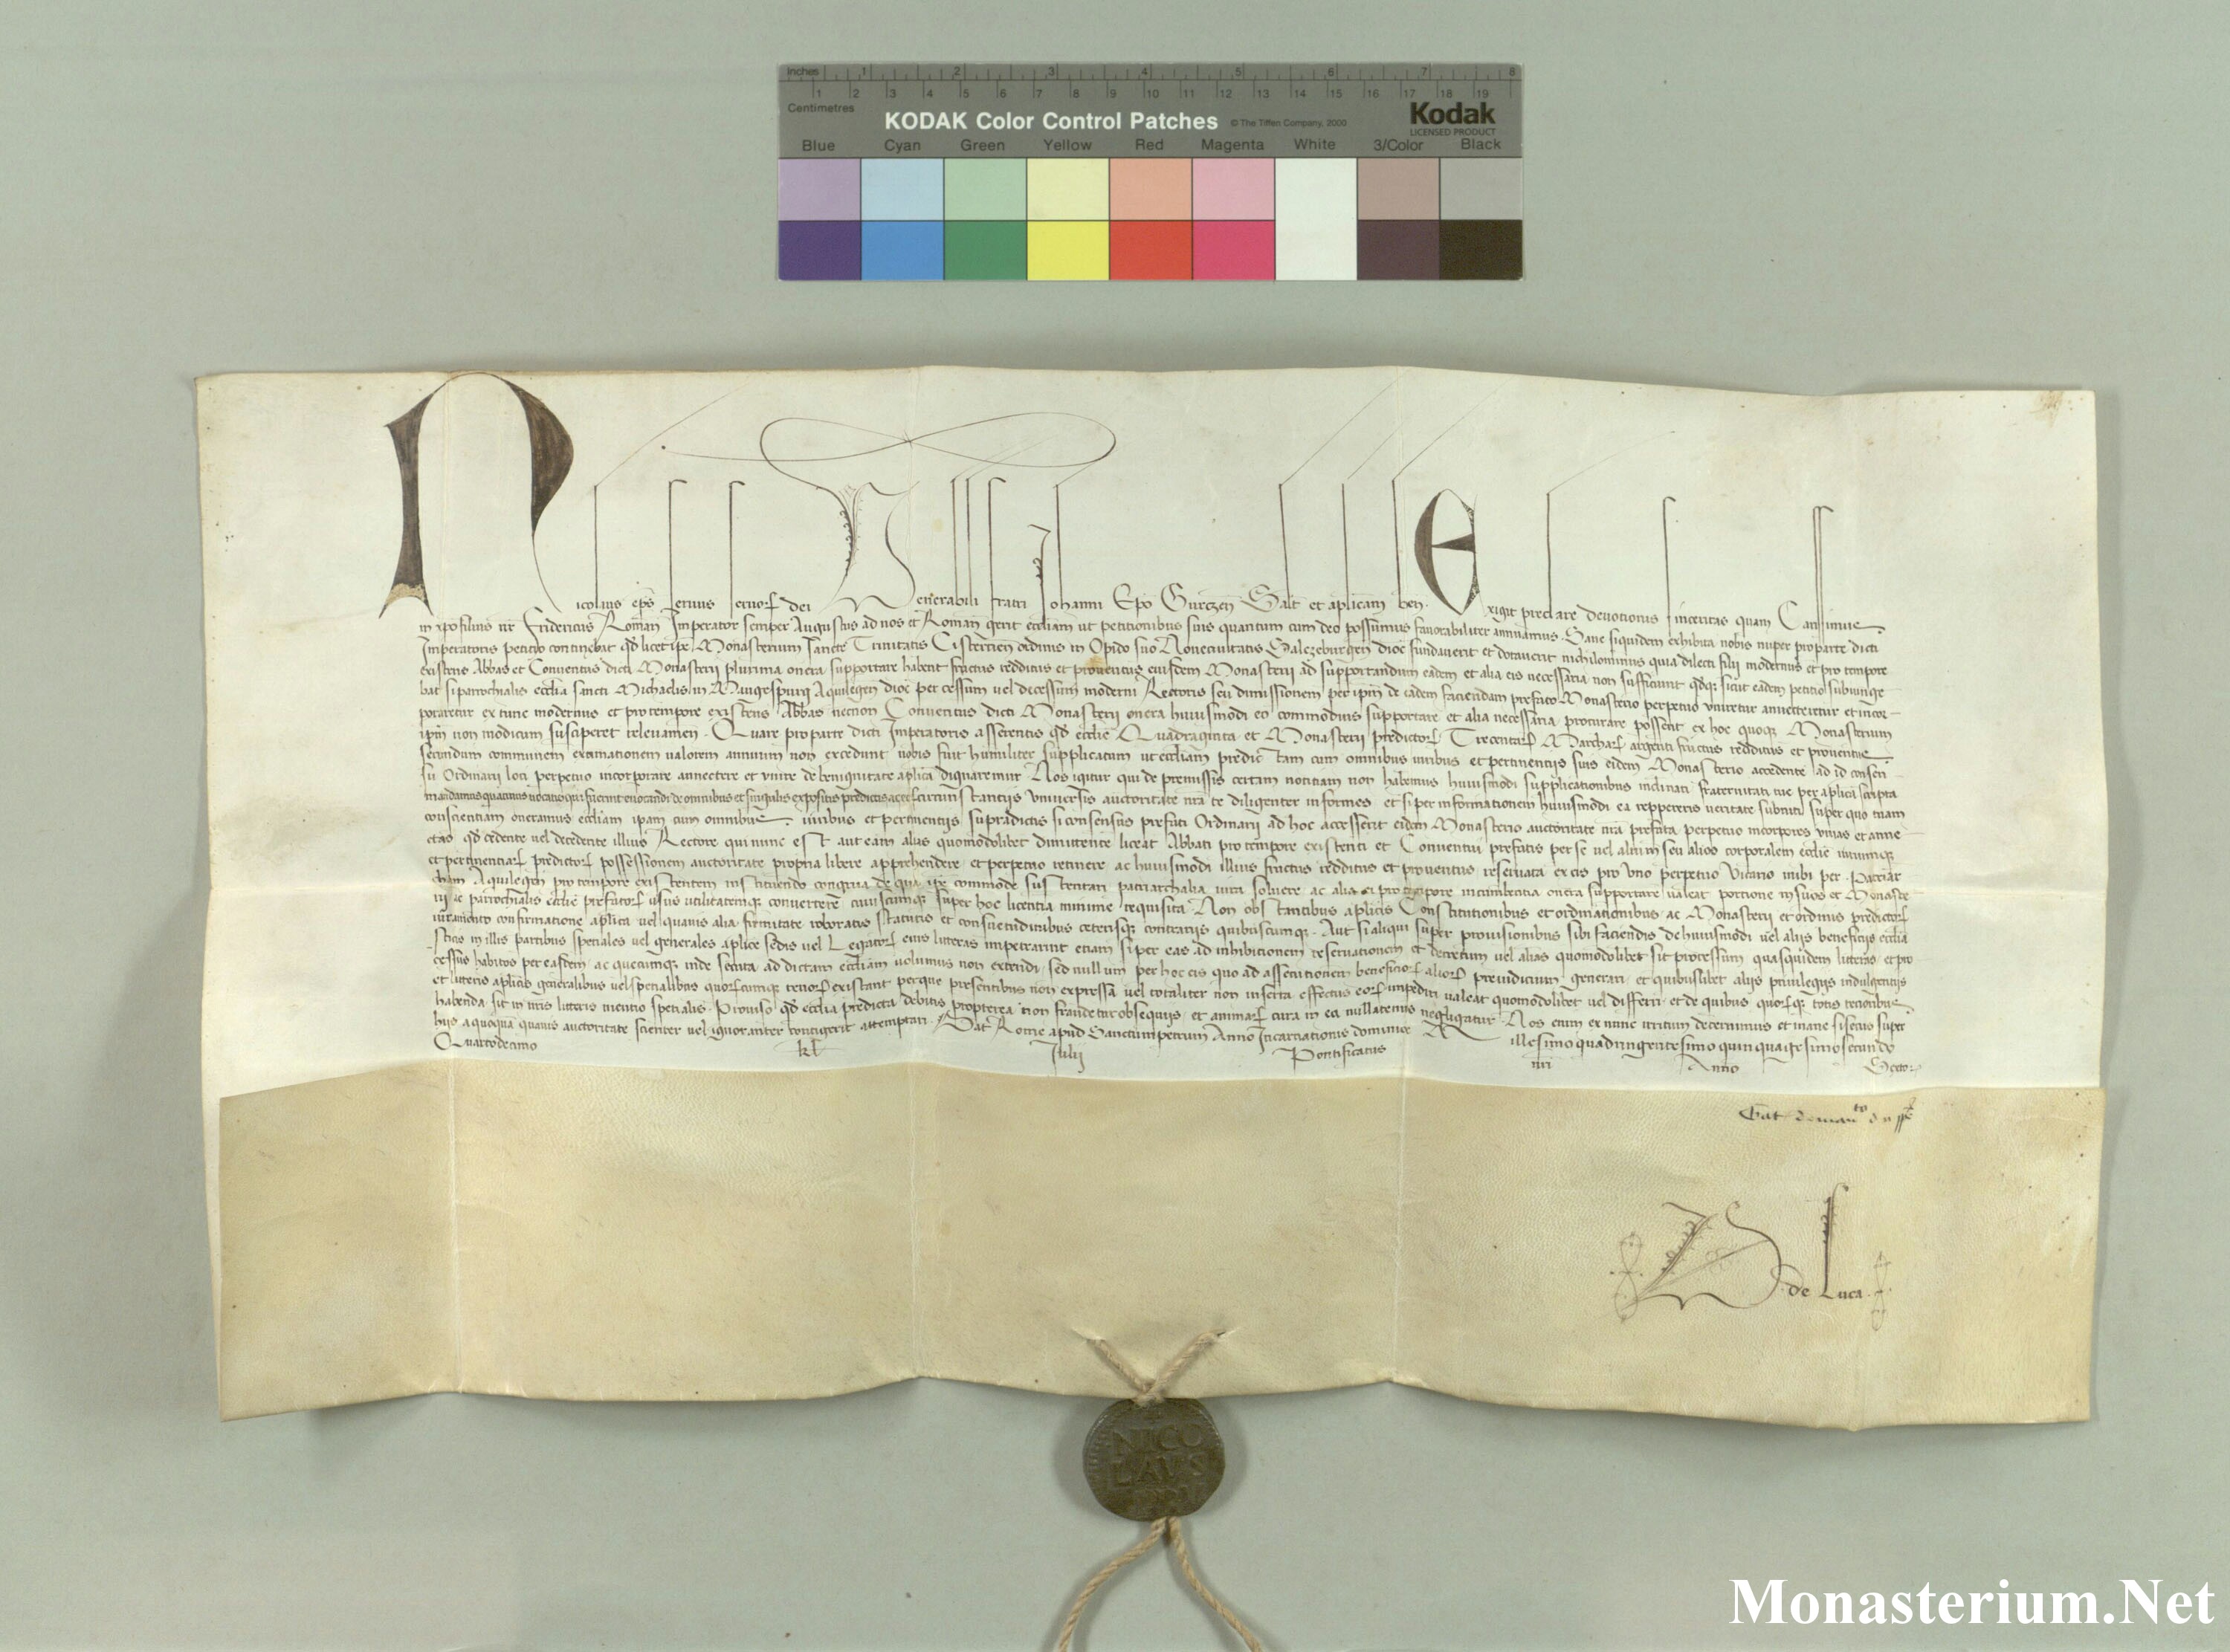 Inches 1 2 3 4 5 6 7 8
1 2 3 4 5 6 7 8 9 10 11 12 13 14 15 16 17 18 19
Centimetres
KODAK Color Control Patches © The Tiffen Company, 2000 Kodak
LICENSED PRODUCT
Blue Cyan Green Yellow Red Magenta White 3/Color Black
Nicolaus eps seruus seruor dei Venerabili fratri Johanni Epo Gurczen Salt et aplicam ben. Exigit preclare deuotionis sinceritas quam Carissimus
in xpo filius nr Fridericus Roman Imperator semper Augustus ad nos et Roman gerit eccliam ut petitionibus suis quantum cum deo possumus fauorabiliter annuamus. Sane siquidem exhibita nobis nuper pro parte dicti
Imperatoris petitio continebat qd licet ipe Monasterium sancte Trinitatis Cistercien ordinis in Opido suo Nouecivitatis Salczeburgen dioc fundauerit et dotauerit nichilominus quia dilecti filii modernus et pro tempore
existens Abbas et Conuentus dicti Monasterii plurima onera supportare habent fructus redditus et prouentus eiusdem Monasterii ad supportandum eadem et alia eis necessaria non sufficiunt qdqz sicut eadem petitio subiunge
bat si parrochialis ecclia sancti Michaelis in Mangespurg Aquilegen dioc per cessum uel decessum moderni Rectoris seu dimissionem per ipm de eadem faciendam prefato Monasterio perpetuo vniretur annecteretur et incor
poraretur ex tunc modernus et pro tempore existens Abbas necnon Conuentus dicti Monasterii onera huiusmodi eo commodius supportare et alia necessaria procurare possent ex hoc quoqz Monasterium
ipm non modicum susciperet releuamen. Quare pro parte dicti Imperatoris asserentis qd ecclie Quadraginta et Monasterii predictor Trecentar Marchar argenti fructus redditus et prouentus
secundum communem extimationem ualorem annuum non excedunt nobis fuit humiliter supplicatum ut eccliam predictam cum omnibus iuribus et pertinentiis suis eidem Monasterio accedente ad id consen
su Ordinarii loci perpetuo incorporare annectere et vnire de benignitate aplica dignaremur Nos igitur qui de premissis certam notitiam non habemus huiusmodi supplicationibus inclinati fraternitati tue per aplica scripta
mandamus quatinus uocatis qui fuerint euocandi de omnibus et singulis expositis predictis ac eor circumstantiis vniuersis auctoritate nra te diligenter informes et si per informationem huiusmodi ea reppereris ueritate subniti super quo tuam
conscientiam oneramus eccliam ipam cum omnibus iuribus et pertinentiis supradictis si consensus prefati Ordinarii ad hoc accesserit eidem Monasterio auctoritate nra prefata perpetuo incorpores vnias et anne
ctas qd cedente uel decedente illius Rectore qui nunc est aut eam alias quomodolibet dimittente liceat Abbati pro tempore existenti et Conuentui prefatis per se uel alium seu alios corporalem ecclie iuriumqz
et pertinentiar predictor possessionem auctoritate propria libere apprehendere et perpetuo retinere ac huiusmodi illius fructus redditus et prouentus reseruata ex eis pro vno perpetuo Vicario inibi per Patriar
cham Aquilegen pro tempore existentem instituendo congrua de qua ipe commode sustentari patriarchalia iura soluere ac alia ei pro tempore incumbentia onera supportare ualeat portione in suos et Monaste
rii ac parrochialis ecclie prefator usus utilitatemqz conuertere cuiuscumqz super hoc licentia minime requisita Non obstantibus aplicis Constitutionibus et ordinationibus ac Monasterii et ordinis predictor
iuramento confirmatione aplica uel quauis alia firmitate roboratis statutis et consuetudinibus ceterisqz contrariis quibuscumqz. Aut si aliqui super prouisionibus sibi faciendis de huiusmodi uel aliis beneficiis ecclia
sticis in illis partibus speciales uel generales aplice sedis uel Legator eius litteras impetrarint etiam si per eas ad inhibitionem reseruationem et decretum uel alias quomodolibet sit processum quasquidem litteras et pro
cessus habitos per easdem ac quecumqz inde secuta ad dictam eccliam uolumus non extendi sed nullum per hoc eis quo ad assecutionem beneficior alior preiudicium generari et quibuslibet aliis priuilegiis indulgentiis
et litteris aplicis generalibus uel specialibus quorcumqz tenor existant per que presentibus non expressa uel totaliter non inserta effectus eor impediri ualeat quomodolibet uel differri et de quibus quorqz totis tenoribus
habenda sit in nris litteris mentio specialis. Prouiso qd ecclia predicta debitis propterea non fraudetur obsequiis et animar cura in ea nullatenus negligatur Nos enim ex nunc irritum decernimus et inane si secus super
hiis a quoquam quauis auctoritate scienter uel ignoranter contigerit attemptari. Dat Rome apud Sanctumpetrum Anno Incarnationis dominice Millesimo quadringentesimo quinquagesimosecundo
Quartodecimo kl Julij Pontificatus nri Anno Sexto
Gat de man to d n pp
de Luca
NICO
LAVS
Monasterium.Net